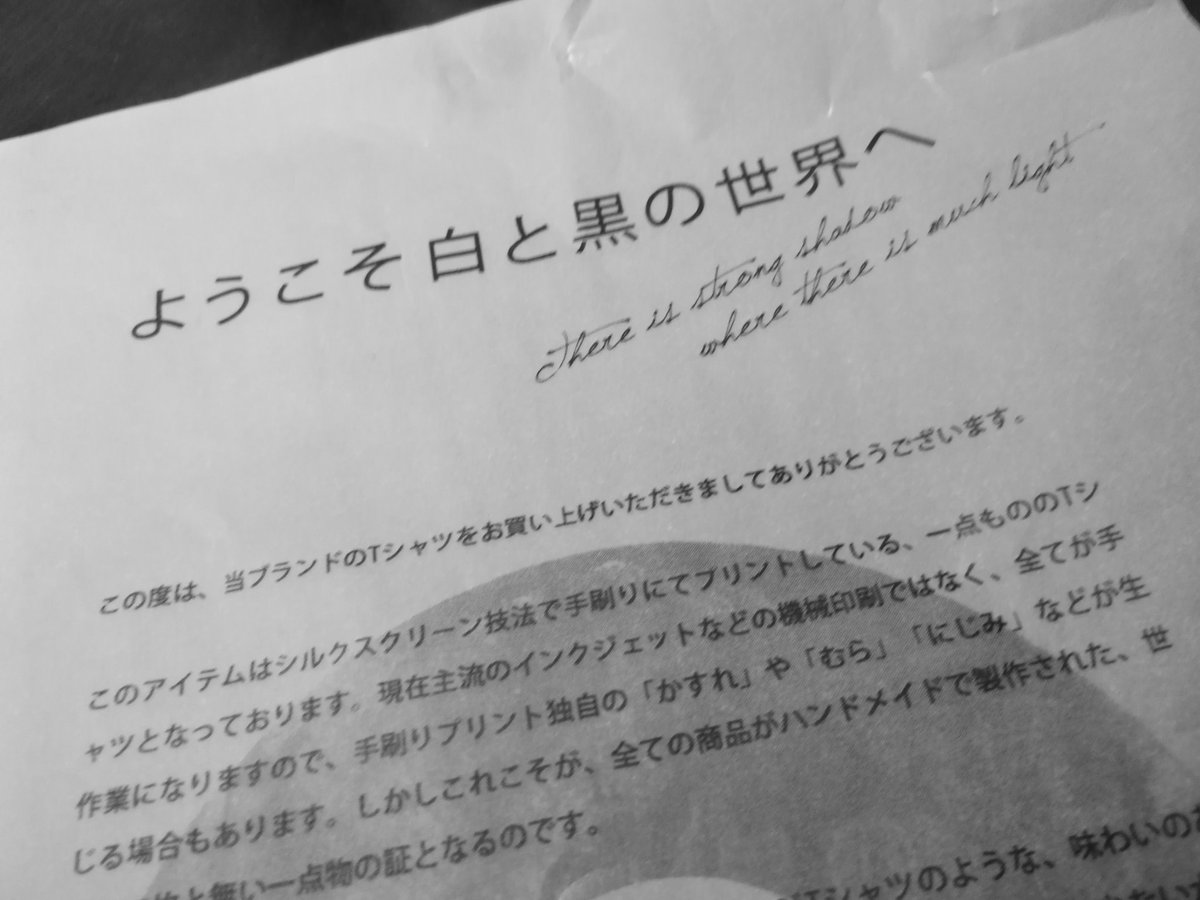 ようこそ白と黒の世界へ
there is strong shadow
where there is much light
この度は、当ブランドのTシャツをお買い上げいただきましてありがとうございます。
このアイテムはシルクスクリーン技法で手刷りにてプリントしている、一点もののTシ
ャツとなっております。現在主流のインクジェットなどの機械印刷ではなく、全てが手
作業になりますので、手刷りプリント独自の「かすれ」や「むら」「にじみ」などが生
じる場合もあります。しかしこれこそが、全ての商品がハンドメイドで製作された、世
と無い一点物の証となるのです。
Tシャツのような、味わいの